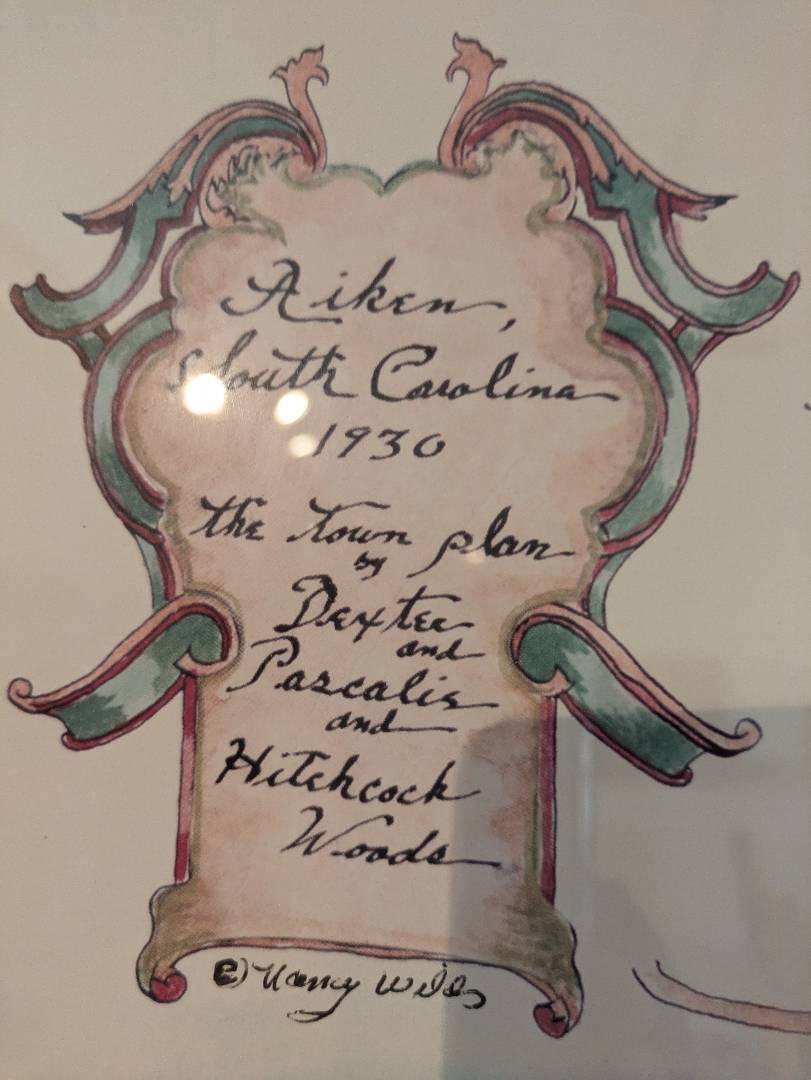 Aiken,
South Carolina
1930
the town plan
by
Dexter
and
Pascalis
and
Hitchcock
Woods
© Nancy Wilds